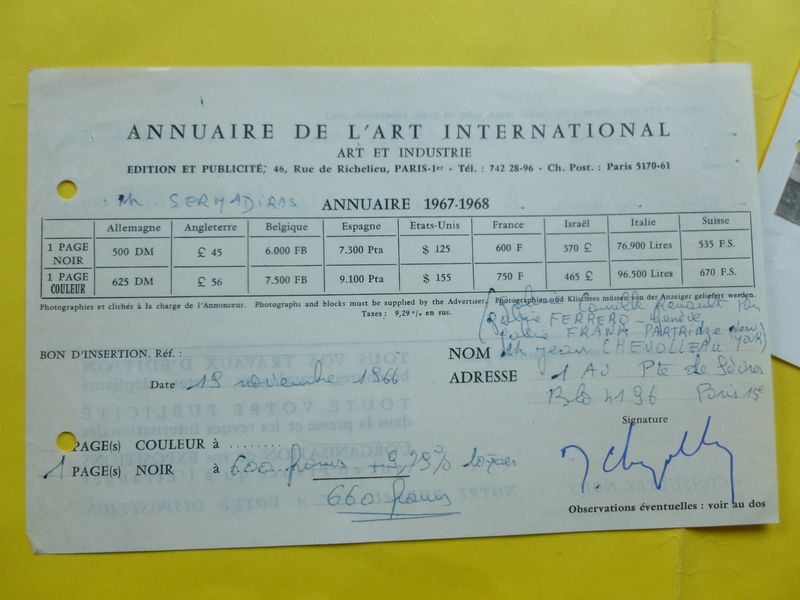 ANNUAIRE DE L'ART INTERNATIONAL
ART ET INDUSTRIE
EDITION ET PUBLICITÉ, 46, Rue de Richelieu, PARIS-1er - Tél. : 742 28-96 - Ch. Post. : Paris 5170-61
SERMADIRAS ANNUAIRE 1967-1968
Allemagne Angleterre Belgique Espagne Etats-Unis France Israël Italie Suisse
1 PAGE NOIR 500 DM £ 45 6.000 FB 7.300 Pta $ 125 600 F 370 £ 76.900 Lires 535 F.S.
1 PAGE COULEUR 625 DM £ 56 7.500 FB 9.100 Pta $ 155 750 F 465 £ 96.500 Lires 670 F.S.
Photographies et clichés à la charge de l'Annonceur. Photographs and blocks must be supplied by the Advertiser. Photographien und Klischees müssen von der Anzeiger geliefert werden.
Taxes : 9,29 % en sus.
Camille Renault
FERRERO - Genève
FRANK PARTRIDGE New York
BON D'INSERTION. Réf. :
NOM Jean CHEVOLLEAU
Date 19 novembre 1966
ADRESSE 1 Av Pte de Sèvres
4196 Paris 15e
Signature
PAGE(s) COULEUR à ........
1 PAGE(s) NOIR à 600 francs + 9,29% taxes
660 francs
Observations éventuelles : voir au dos